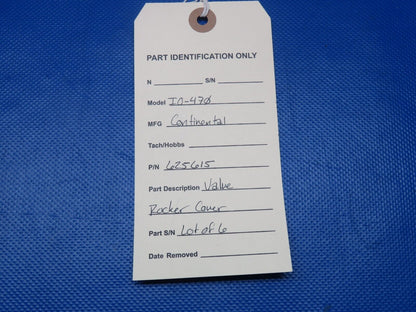 PART IDENTIFICATION ONLY
N ________ S/N ________
Model IO-470
MFG Continental
Tach/Hobbs ________
P/N 625615
Part Description Valve
Rocker Cover
Part S/N Lot of 6
Date Removed ________